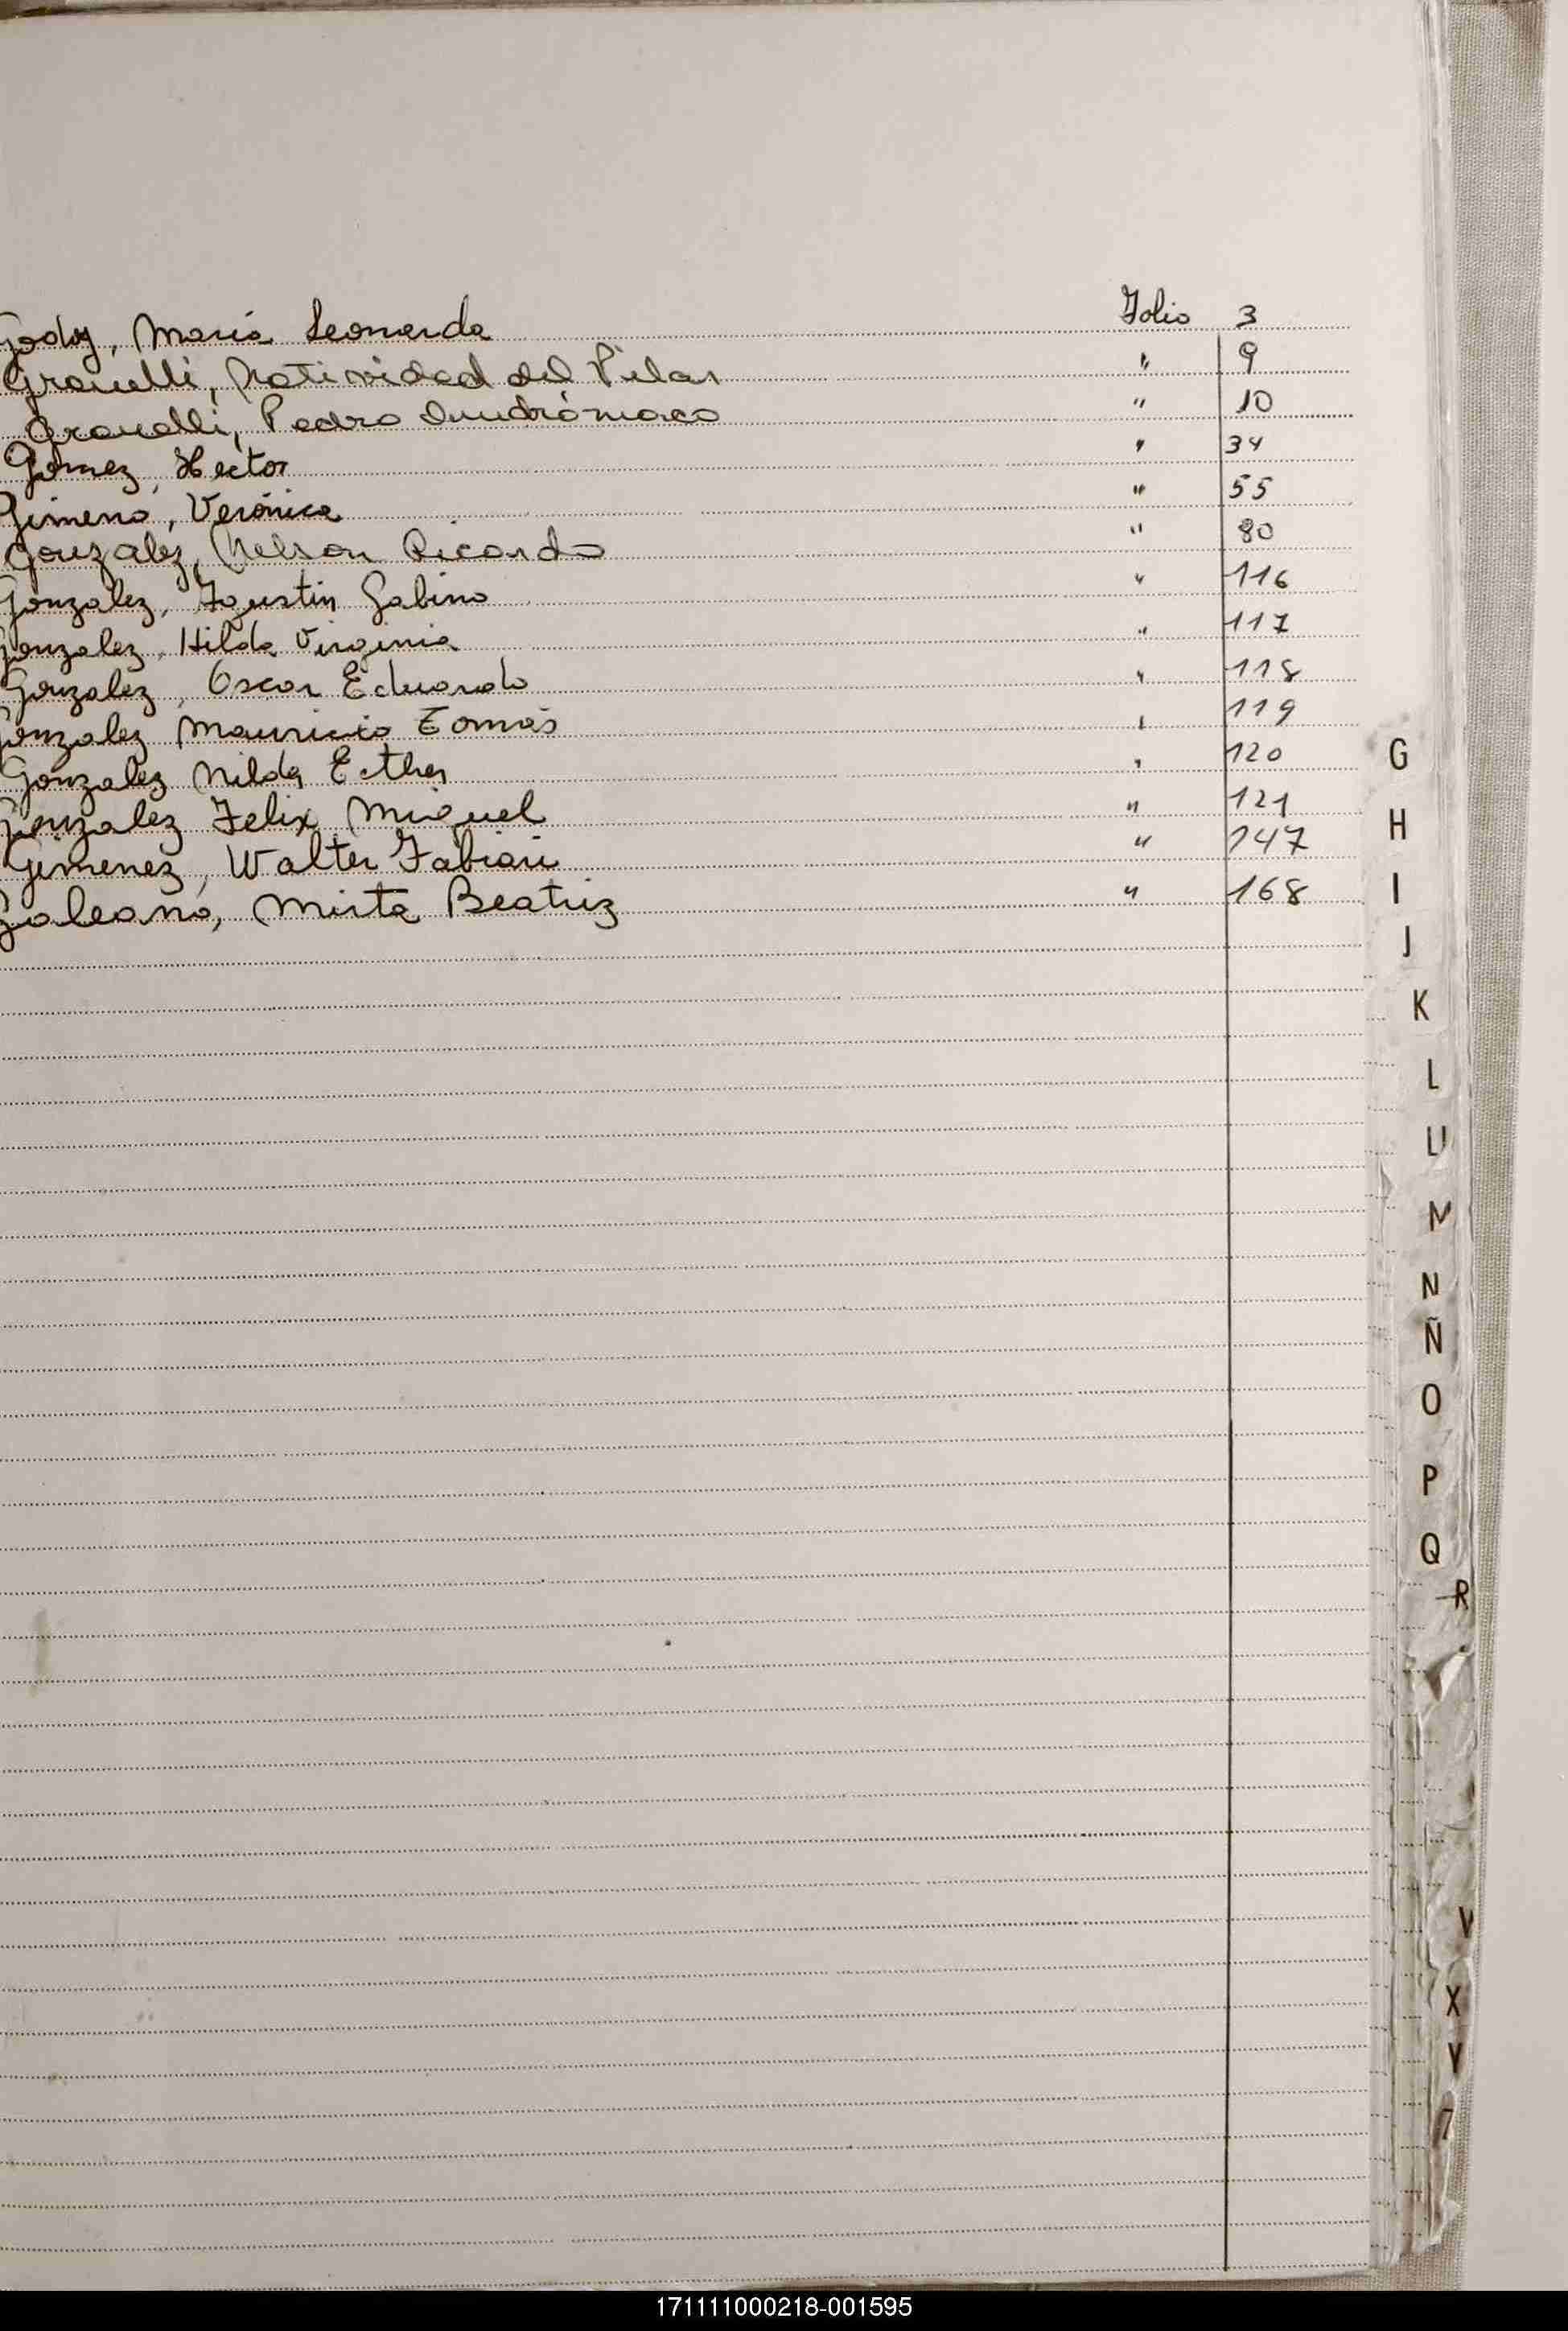 Godoy, María Leonarda Folio 3
Gravelli, Natividad del Pilar " 9
Gravelli, Pedro " 10
Gómez, Hector " 34
Gimeno, Verónica " 55
Gonzalez, Nelson Ricardo " 80
Gonzalez, Agustin Gabino " 116
Gonzalez, Hilda Virginia " 117
Gonzalez, Oscar Eduardo " 118
Gonzalez Mauricio Tomás " 119
Gonzalez Nilda Esther " 120
Gonzalez Felix Miguel " 121
Gimenez, Walter Fabian " 147
Galeano, Mirta Beatriz " 168
G
H
I
J
K
L
M
N
Ñ
O
P
Q
R
V
X
Y
171111000218-001595